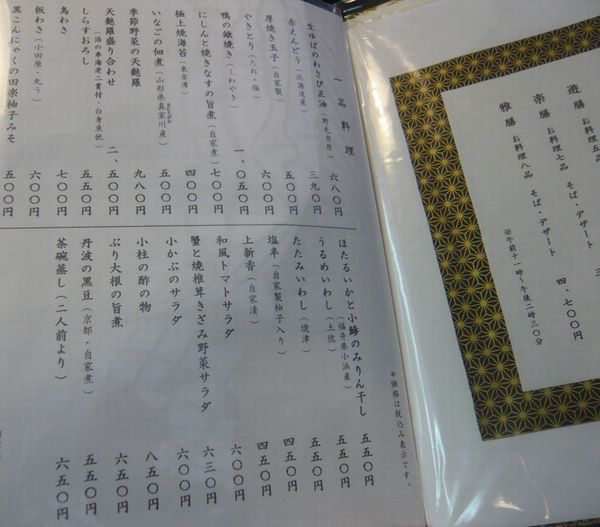 一品料理
生ゆばのわさび正油（野毛吉原） 六八〇円
赤えんどう（北海道産） 三九〇円
厚焼き玉子（自家製） 五五〇円
やきとり（たれ・塩） 六〇〇円
鴨の鍬焼き（くわやき） 一、〇五〇円
にしんと焼きなすの旨煮（自家煮） 七〇〇円
極上焼海苔（東京湾） 四〇〇円
いなごの佃煮（山形県真室川産） 五〇〇円
季節野菜の天麩羅 九八〇円
天麩羅盛り合わせ
（活の車海老二貫付・白身魚他） 二、一〇〇円
しらすおろし 五五〇円
鳥わさ 七〇〇円
板わさ（小田原・丸う） 六〇〇円
黒こんにゃくの田楽柚子みそ 五〇〇円
ほたるいかと小鯵のみりん干し
（福井県小浜産） 五五〇円
うるめいわし（土佐） 五五〇円
たたみいわし（焼津） 五五〇円
塩辛（自家製柚子入り） 四五〇円
上新香（自家漬） 四五〇円
和風トマトサラダ 六〇〇円
蟹と焼椎茸きざみ野菜サラダ 六三〇円
小かぶのサラダ 六〇〇円
小柱の酢の物 八五〇円
ぶり大根の旨煮 六五〇円
丹波の黒豆（京都・自家煮） 五五〇円
茶碗蒸し（二人前より） 六五〇円
＊価格は税込み表示です。
遊膳 お料理五品 そば・デザート 三
楽膳 お料理七品 そば・デザート 四、七〇〇円
雅膳 お料理八品 そば・デザート
※午前十一時〜午後二時三〇分